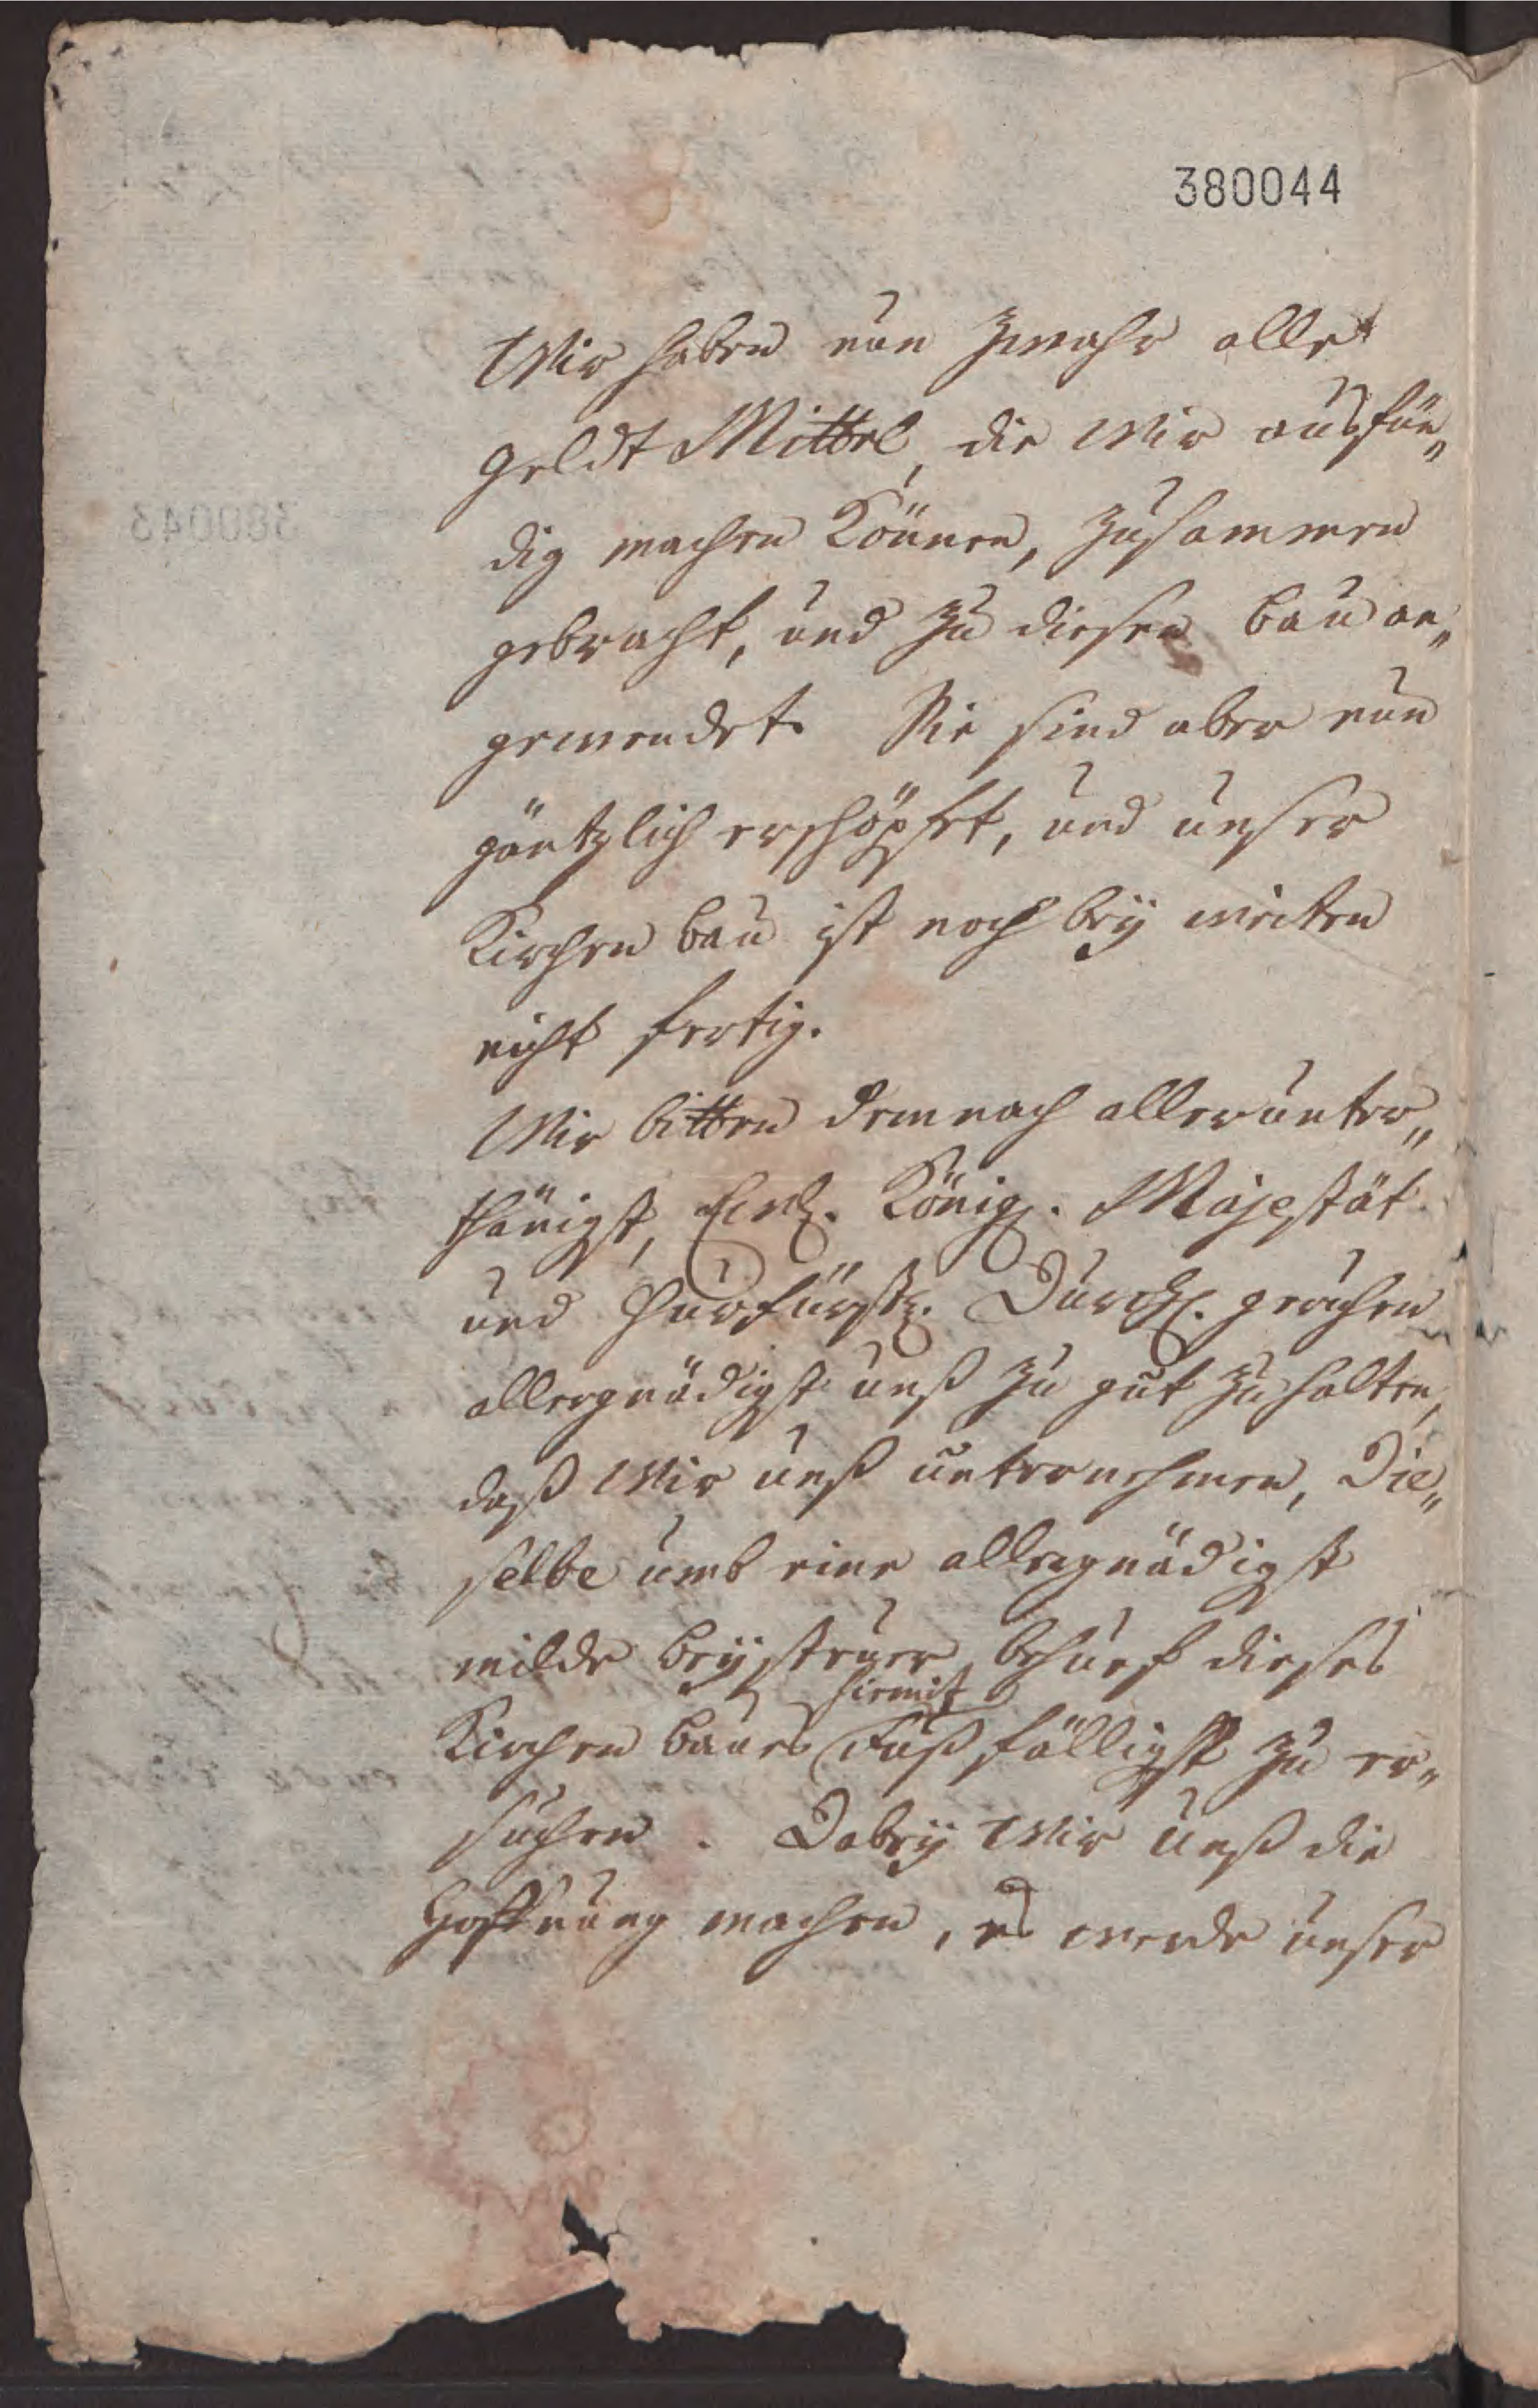 380044
Wir haben nun zwahr alle
geldt Mittel, die wir ausfün„
dig machen können, zusammen
gebracht, und zu diesen bau an„
gewendet. Sie sind aber nun
gäntzlich erschöpfet, und unser
Kirchen bau ist noch beÿ weiten
nicht fertig.
Wir bitten demnach allerunter„
thänigst, Königl. Majestät
und Churfürstl. Durchl. geruhen
allergnädigst unß zu gut zu halten,
daß Wir unß unternehmen, Die„
selbe umb eine allergnädigst
milde beÿsteuer behuef dieses
hiemit
Kirchen baues Fußfälligst zu er„
suchen. Dabeÿ Wir unß die
Hoffnung machen, es werde unser
380043